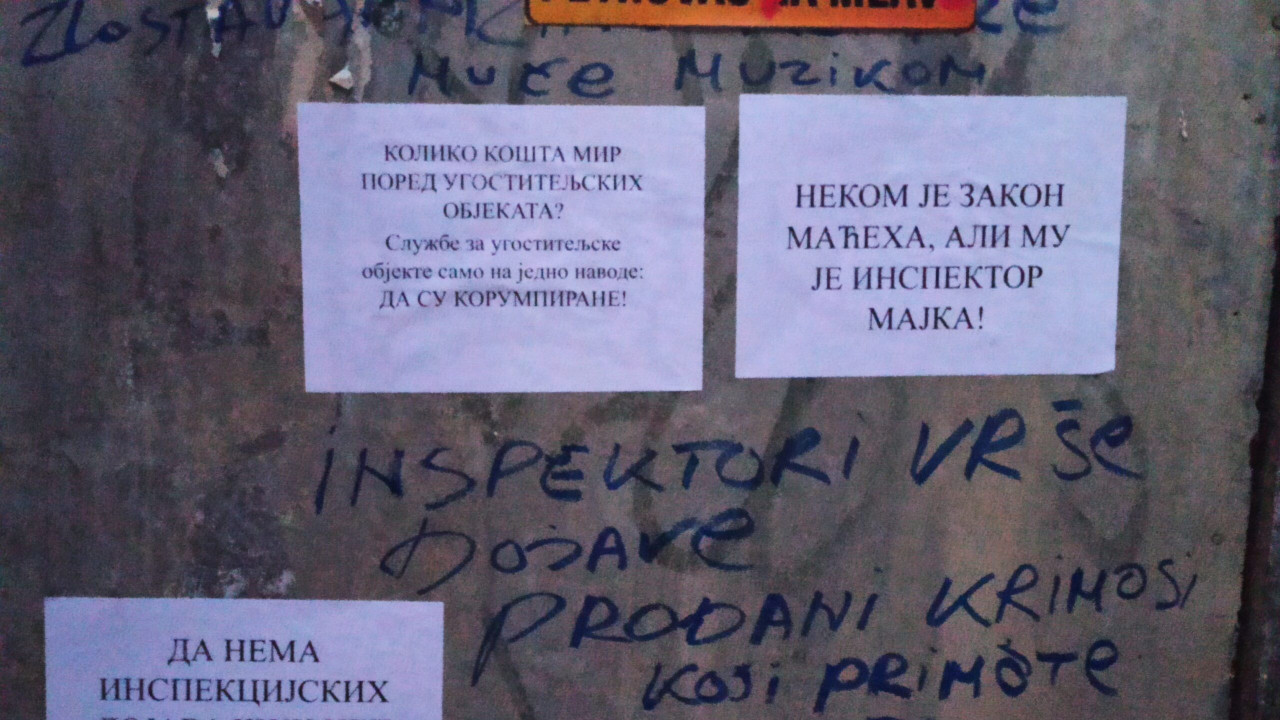 НА МЛАВ
Muče Muzikom
КОЛИКО КОШТА МИР
ПОРЕД УГОСТИТЕЉСКИХ
ОБЈЕКАТА?
Службе за угоститељске
објекте само на једно наводе:
ДА СУ КОРУМПИРАНЕ!
НЕКОМ ЈЕ ЗАКОН
МАЋЕХА, АЛИ МУ
ЈЕ ИНСПЕКТОР
МАЈКА!
INSPEKTORI VRše
DOJAVe
PRODANI KRIMOSI
KOJI PRIMATE
ДА НЕМА
ИНСПЕКЦИЈСКИХ